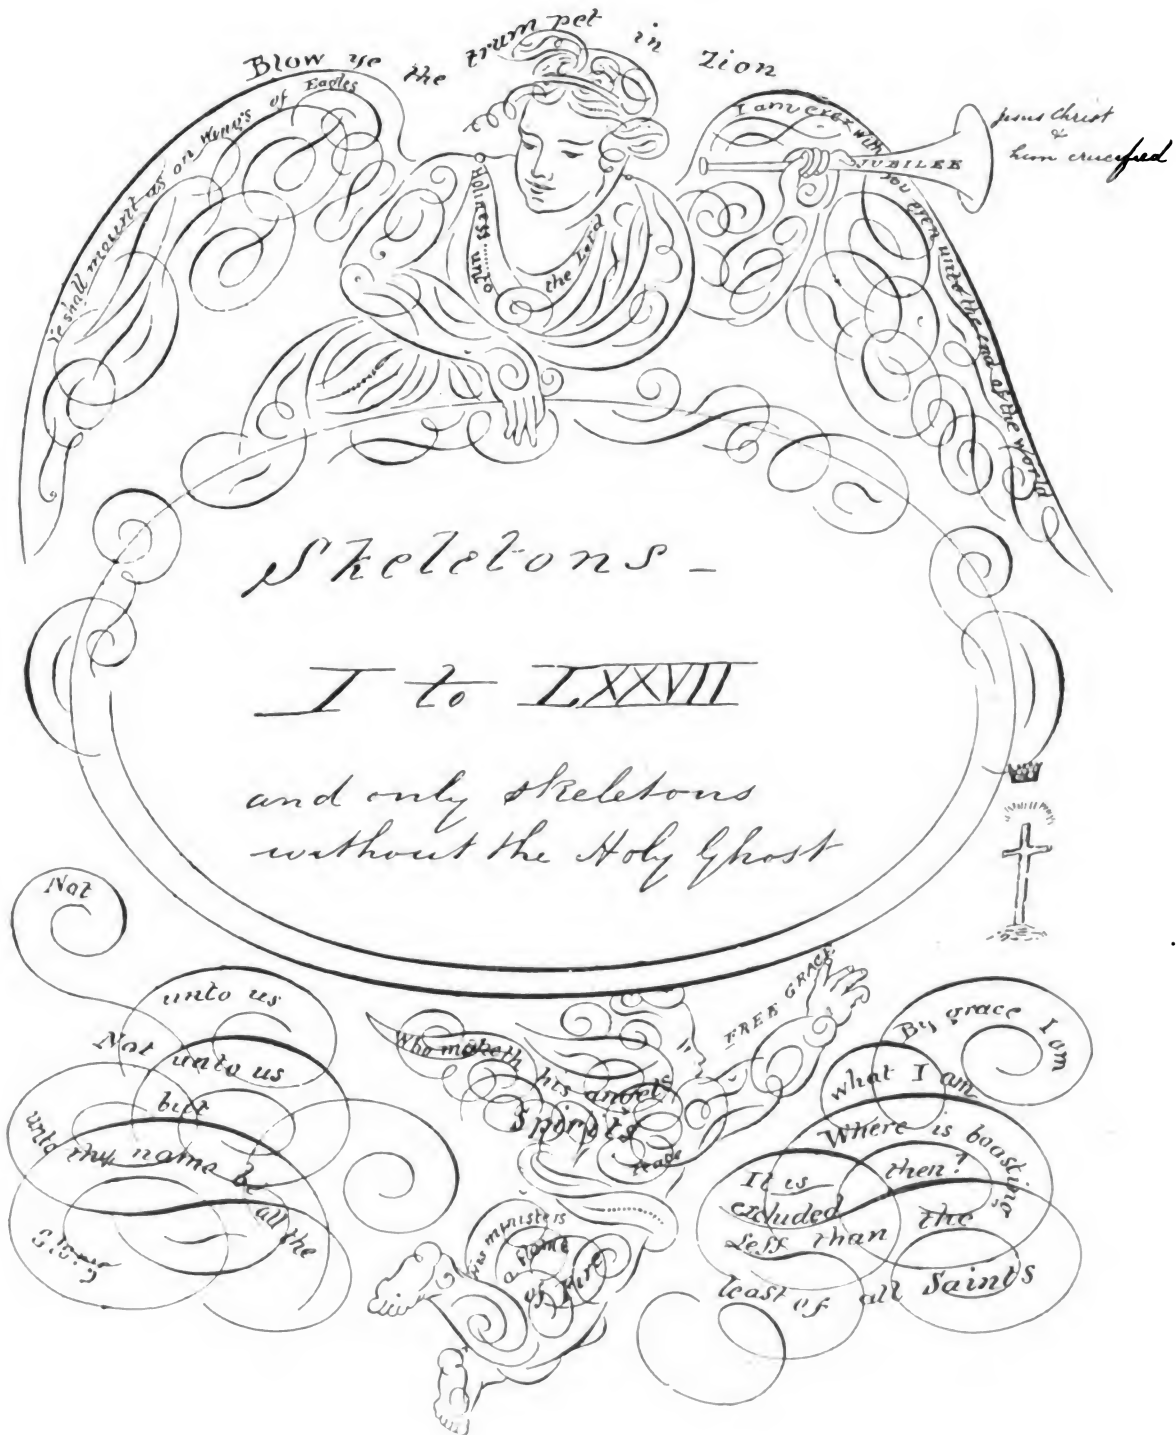 Blow ye the trumpet in Zion
Ye shall mount as on Wings of Eagles
I am ever with you even unto the end of the world
JUBILEE
Jesus Christ
&
him crucified
Holiness unto
the Lord
Skeletons -
I to LXXVII
and only skeletons
without the Holy Ghost
Not
unto us
Not unto us
but
unto thy name be
all the
Glory
Who maketh his angels
Spirits
FREE GRACE
his ministers
a flame
of Fire
By grace I am
what I am
Where is boasting
then?
It is
excluded
Less than the
least of all Saints